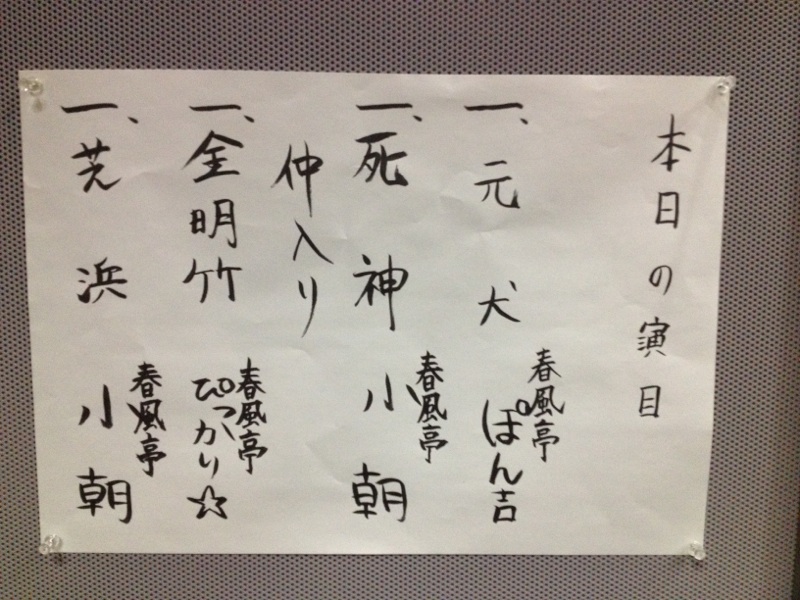 本日の演目
一、元犬 春風亭 ぽん吉
一、死神 春風亭 小朝
仲入り
一、金明竹 春風亭 ぴっかり☆
一、芝浜 春風亭 小朝